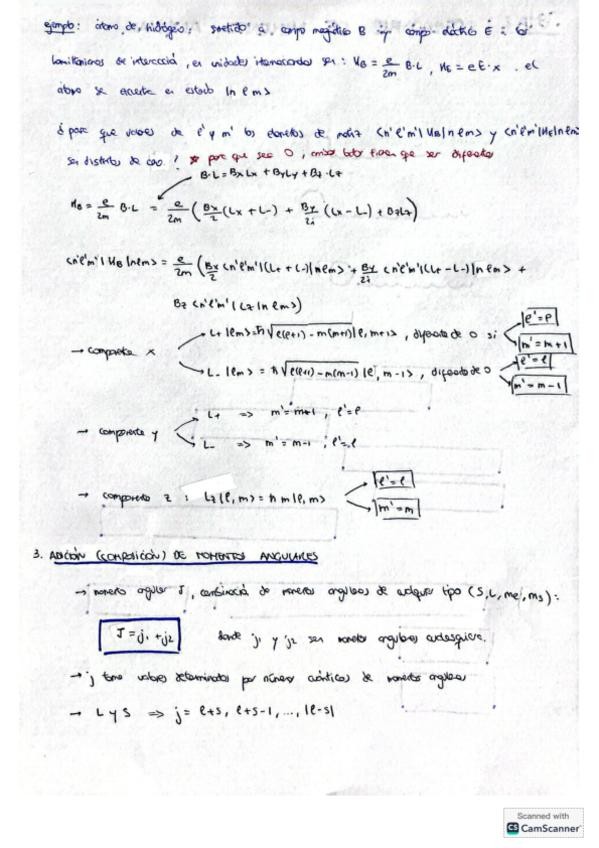 ejemplo: átomo de hidrógeno, sometido a campo magnético B y campo eléctrico E :
hamiltonianos de interacción, en unidades internacionales son: H_B = e/2m B·L, H_E = e E·x. el
átomo se encuentra en estado |n l m>
¿para que valores de l' y m' los elementos de matriz <n'l'm'|H_B|nlm> y <n'l'm'|H_E|nlm>
son distintos de cero? * para que sea 0, ambos tienen que ser diferentes
B·L = BxLx + ByLy + Bz·Lz
H_B = e/2m B·L = e/2m (Bx/2 (L+ + L-) + By/2i (L+ - L-) + BzLz)
<n'l'm'|H_B|nlm> = e/2m (Bx/2 <n'l'm'|(L+ + L-)|nlm> + By/2i <n'l'm'|(L+ - L-)|nlm> +
Bz <n'l'm'|Lz|nlm>)
→ componente x
L+|lm> = ħ√l(l+1)-m(m+1) |l, m+1>, diferente de 0 si
l'=l
m'=m+1
L-|lm> = ħ√l(l+1)-m(m-1) |l, m-1>, diferente de 0
l'=l
m'=m-1
→ componente y
L+ => m'=m+1, l'=l
L- => m'=m-1, l'=l
→ componente z : Lz|l,m> = ħ m|l,m>
l'=l
m'=m
3. ADICIÓN (COMPOSICIÓN) DE MOMENTOS ANGULARES
→ momento angular J, combinación de momentos angulares de cualquier tipo (S, L, me, ms):
J = j1 + j2 donde j1 y j2 son momentos angulares cualesquiera.
→ j toma valores determinados por números cuánticos de momentos angulares
→ L y S => j = l+s, l+s-1, ..., |l-s|
Scanned with
CS CamScanner